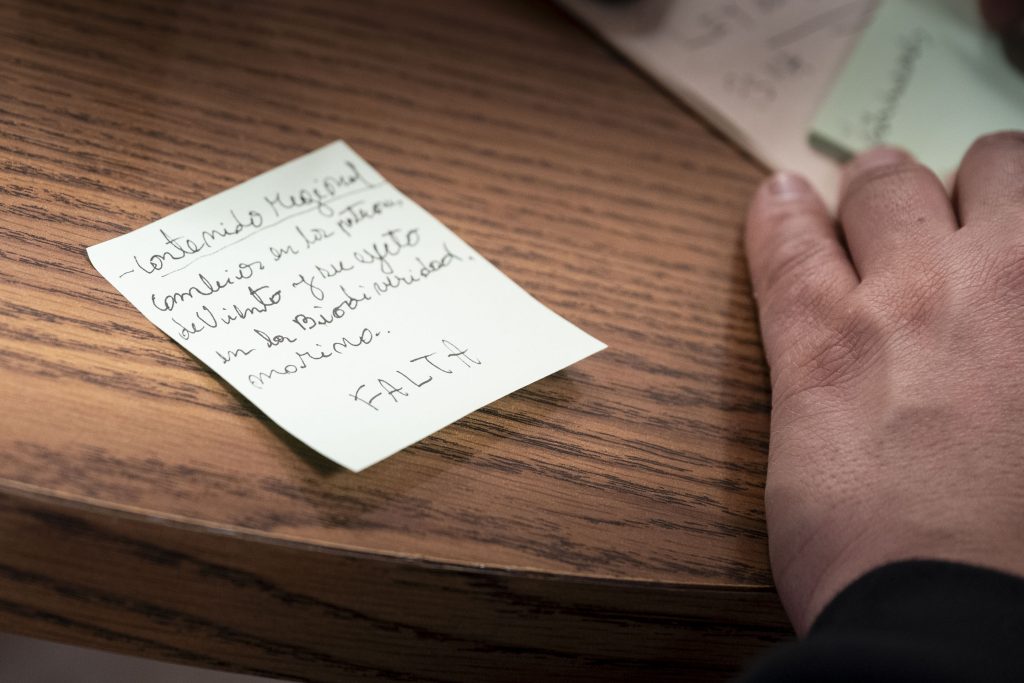 - Contenido Regional
cambios en los patrones
de Viento y su efeto
en la Biodiversidad.
marina..
FALTA